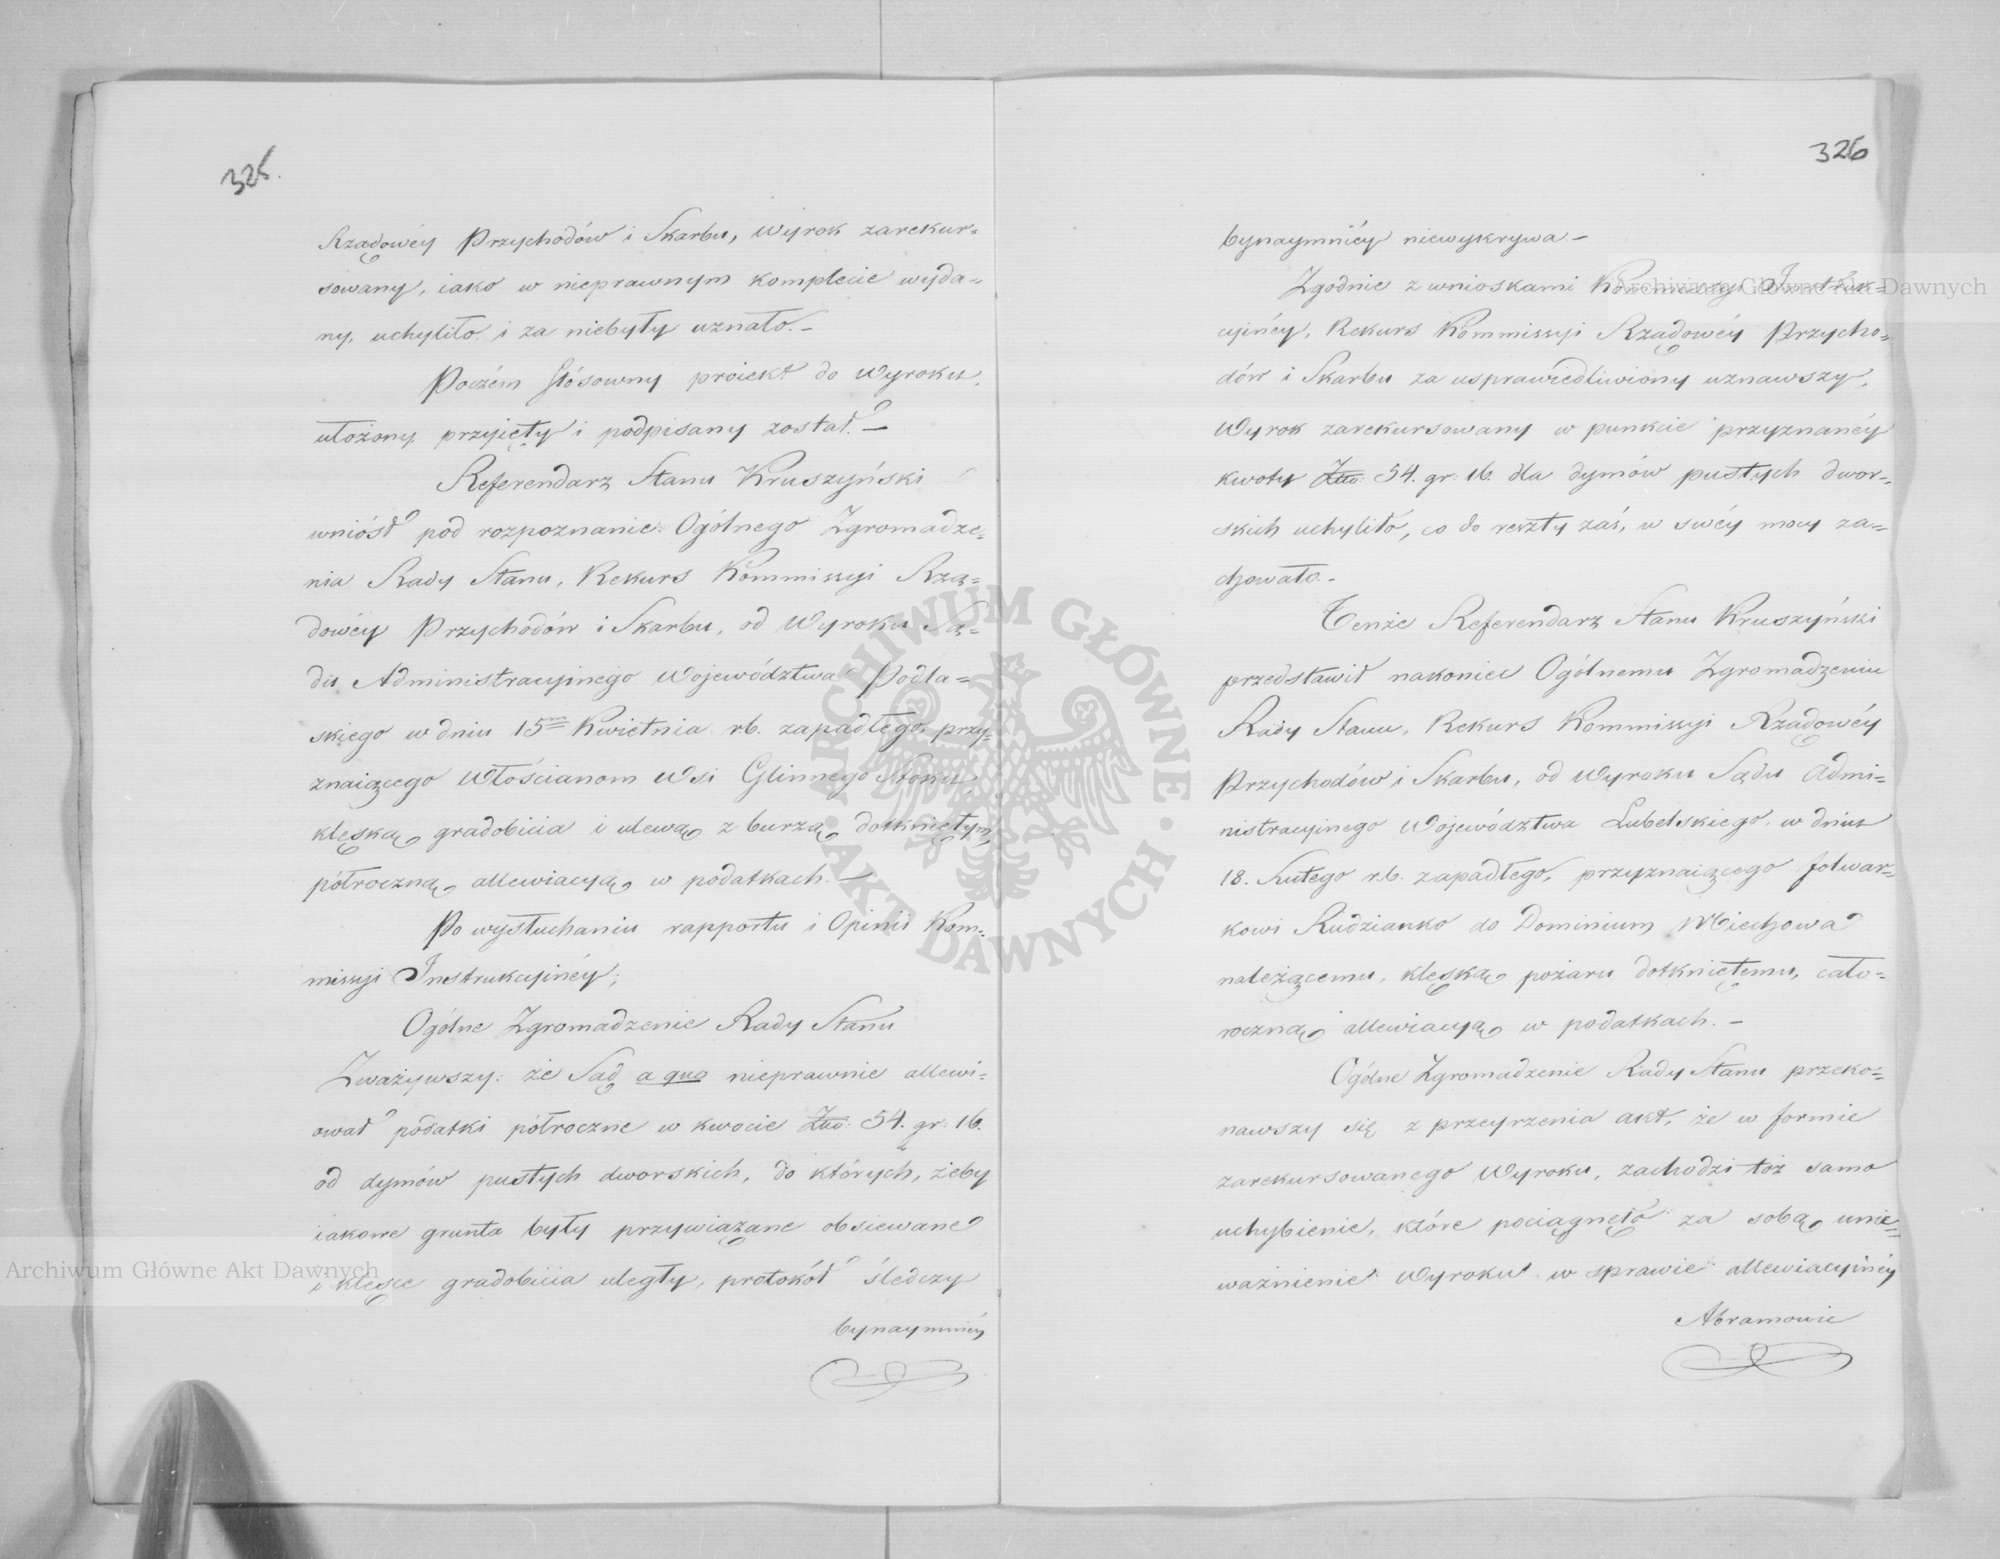 325.
Rządowéy Przychodów i Skarbu, Wyrok zarekur=
sowany, iako w nieprawnym komplecie wyda=
ny, uchyliło i za niebyły uznało.–
Poczém stósowny proiekt do Wyroku,
ułożony, przyięty i podpisany został.–
Referendarz Stanu Kruszyński
wniósł pod rozpoznanie Ogólnego Zgromadze=
nia Rady Stanu, Rekurs Kommissyi Rzą=
dowéy Przychodów i Skarbu, od Wyroku Są=
du Administracyinego Województwa Podla=
skiego w dniu 15m Kwietnia rb. zapadłego, przy=
znaiącego Włościanom Wsi Glinnego Stoku
klęską gradobicia i ulewą z burzą dotkniętym,
półroczną allewiacyą w podatkach.–
Po wysłuchaniu rapportu i Opinii Kom=
missyi Instrukcyinéy;
Ogólne Zgromadzenie Rady Stanu
Zważywszy: że Sąd a quo nieprawnie allewi=
ował podatki półroczne w kwocie Złto: 54. gr: 16.
od dymów pustych dworskich, do których, żeby
iakowe grunta były przywiązane obsiewane
i klęsce gradobicia uległy, protokół śledczy
bynaymniéy
326
bynaymniéy niewykrywa.–
Zgodnie z wnioskami Kommissyi Instruk=
cyinéy, Rekurs Kommissyi Rządowéy Przycho=
dów i Skarbu za usprawiedliwiony uznawszy,
Wyrok zarekursowany w punkcie przyznanéy
kwoty Złto: 54. gr: 16. dla dymów pustych dwor=
skich uchyliło, co do reszty zaś, w swéy mocy za=
chowało.–
Tenże Referendarz Stanu Kruszyński
przedstawił nakoniec Ogólnemu Zgromadzeniu
Rady Stanu, Rekurs Kommissyi Rządowéy
Przychodów i Skarbu, od Wyroku Sądu Admi=
nistracyinego Województwa Lubelskiego w dniu
18. Lutego r.b. zapadłego, przyznaiącego folwar=
kowi Rudzianko do Dominium Miechowa
należącemu, klęską pożaru dotkniętemu, cało=
roczną allewiacyą w podatkach.–
Ogólne Zgromadzenie Rady Stanu przeko=
nawszy się z przeyrzenia akt, że w formie
zarekursowanego Wyroku, zachodzi toż samo
uchybienie, które pociągnęło za sobą unie=
ważnienie Wyroku w sprawie allewiacyinéy
Abramowic
Archiwum Główne Akt Dawnych
Archiwum Główne Akt Dawnych
ARCHIWUM GŁÓWNE
AKT DAWNYCH